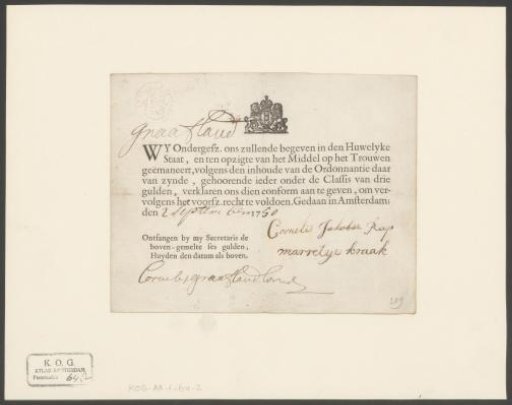 graafland
WY Ondergesz. ons zullende begeven in den Huwelyke
Staat, en ten opzigte van het Middel op het Trouwen
geemaneert, volgens den inhoude van de Ordonnantie daar
van zynde, gehoorende ieder onder de Classis van drie
gulden, verklaren ons dien conform aan te geven, om ver-
volgens het voorsz. recht te voldoen. Gedaan in Amsterdam:
den 2 September 1750
Cornelis Jakobse Kap
marretje kraak
Ontfangen by my Secretaris de
boven-gemelte ses gulden,
Huyden den datum als boven.
Cornelis graafland
259
K. O. G.
ATLAS AMSTERDAM
Portefeuille 64-2
KOG-AA-1-64-2